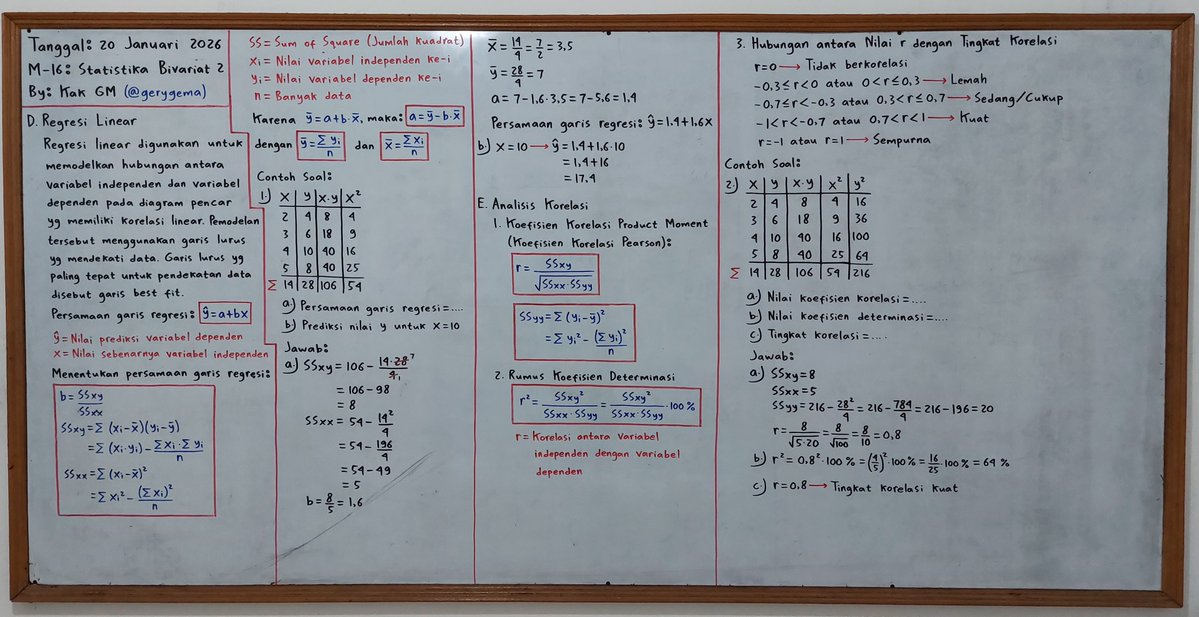 Tanggal: 20 Januari 2026
M-16: Statistika Bivariat 2
By: Kak GM (@gerygema)
D. Regresi Linear
Regresi linear digunakan untuk
memodelkan hubungan antara
variabel independen dan variabel
dependen pada diagram pencar
yg memiliki korelasi linear. Pemodelan
tersebut menggunakan garis lurus
yg mendekati data. Garis lurus yg
paling tepat untuk pendekatan data
disebut garis best fit.
Persamaan garis regresi: ŷ=a+bx
ŷ= Nilai prediksi variabel dependen
x= Nilai sebenarnya variabel independen
Menentukan persamaan garis regresi:
b = SSxy/SSxx
SSxy = Σ (xi-x̄)(yi-ȳ)
= Σ (xi·yi) - (Σxi·Σyi)/n
SSxx = Σ (xi-x̄)²
= Σ xi² - (Σxi)²/n
SS = Sum of Square (Jumlah Kuadrat)
xi = Nilai variabel independen ke-i
yi = Nilai variabel dependen ke-i
n = Banyak data
Karena ȳ=a+b·x̄, maka: a=ȳ-b·x̄
dengan ȳ=Σyi/n dan x̄=Σxi/n
Contoh Soal:
1.) x y x·y x²
2 4 8 4
3 6 18 9
4 10 40 16
5 8 40 25
Σ 14 28 106 54
a.) Persamaan garis regresi=....
b.) Prediksi nilai y untuk x=10
Jawab:
a.) SSxy = 106 - (14·28)/4 7 1
= 106-98
= 8
SSxx = 54 - 14²/4
= 54 - 196/4
= 54-49
= 5
b = 8/5 = 1,6
x̄ = 14/4 = 7/2 = 3.5
ȳ = 28/4 = 7
a = 7-1,6·3.5 = 7-5,6 = 1,4
Persamaan garis regresi: ŷ=1,4+1,6x
b.) x=10 → ŷ=1,4+1,6·10
= 1,4+16
= 17,4
E. Analisis Korelasi
1. Koefisien Korelasi Product Moment
(Koefisien Korelasi Pearson):
r = SSxy/√(SSxx·SSyy)
SSyy = Σ (yi-ȳ)²
= Σ yi² - (Σyi)²/n
2. Rumus Koefisien Determinasi
r² = SSxy²/(SSxx·SSyy) = SSxy²/(SSxx·SSyy) ·100 %
r = Korelasi antara variabel
independen dengan variabel
dependen
3. Hubungan antara Nilai r dengan Tingkat Korelasi
r=0 → Tidak berkorelasi
-0,3≤r<0 atau 0<r≤0,3 → Lemah
-0,7≤r<-0,3 atau 0,3<r≤0,7 → Sedang/Cukup
-1<r<-0,7 atau 0,7<r<1 → Kuat
r=-1 atau r=1 → Sempurna
Contoh Soal:
2.) x y x·y x² y²
2 4 8 4 16
3 6 18 9 36
4 10 40 16 100
5 8 40 25 64
Σ 14 28 106 54 216
a.) Nilai koefisien korelasi=....
b.) Nilai koefisien determinasi=....
c.) Tingkat korelasi=....
Jawab:
a.) SSxy=8
SSxx=5
SSyy=216-28²/4 = 216-784/4 = 216-196 = 20
r = 8/√(5·20) = 8/√100 = 8/10 = 0,8
b.) r² = 0,8²·100 % = (4/5)²·100 % = 16/25·100 % = 64 %
c.) r=0,8 → Tingkat korelasi kuat